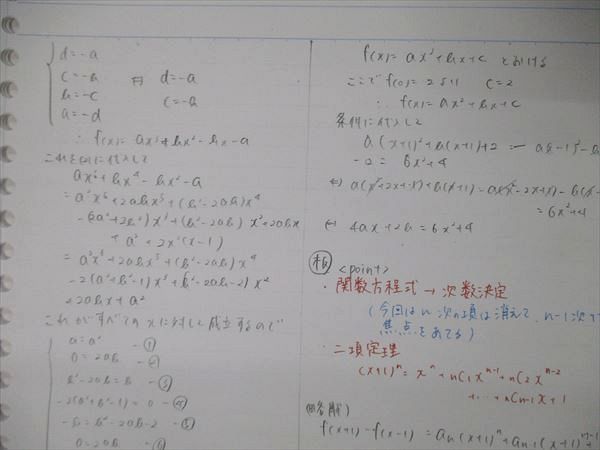 d=-a
c=-b
b=-c
a=-d
d=-a
c=-b
∴ f(x)= ax³+bx²-bx-a
これを(1)に代入して
ax⁶+bx⁴-bx²-a
= a²x⁶+2abx⁵+(b²-2ab)x⁴
-(2a²+2b²)x³+(b²-2ab)x²+2abx
+a²+2x²(x-1)
= a²x⁶+2abx⁵+(b²-2ab)x⁴
-2(a²+b²-1)x³+(b²-2ab-2)x²
+2abx+a²
これがすべてのxに対して成立するので
a=a² -①
0=2ab -②
b²-2ab=b -③
-2(a²+b²-1)=0 -④
-b=b²-2ab-2 -⑤
0=2ab -⑥
f(x)= ax²+bx+c とおける
ここで f(0)=2より c=2
∴ f(x)= ax²+bx+c
条件に代入して
a(x+1)²+b(x+1)+2 - a(x-1)²-b
-2= 6x²+4
⇔ a(x²+2x+1)+b(x+1)-a(x²-2x+1)-b(x-
=6x²+4
⇔ 4ax+2b=6x²+4
板 <point>
・関数方程式→次数決定
(今回はn次の項は消えて、n-1次で
焦点をあてる)
・二項定理
(x+1)ⁿ= xⁿ+nC1xⁿ⁻¹+nC2xⁿ⁻²
+…+nCn-1x+1
(解答解)
f(x+1)-f(x-1)=an(x+1)ⁿ+an-1(x+1)ⁿ⁻¹+